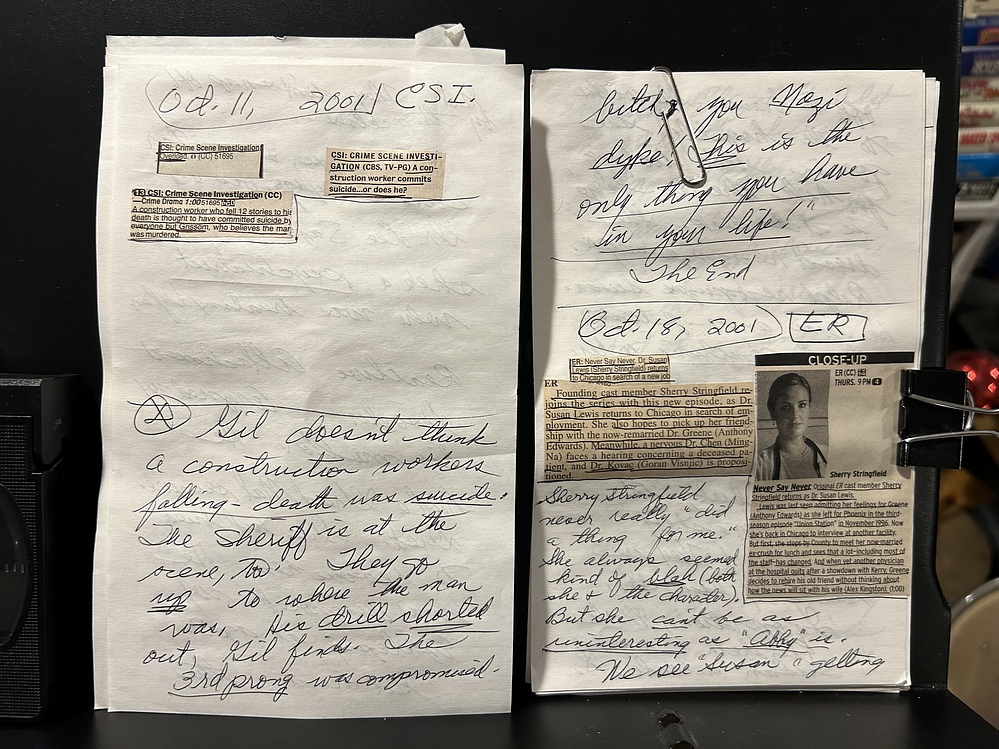 Oct. 11, 2001 CSI.
CSI: Crime Scene Investigation
Overload. (CC) 51695
CSI: CRIME SCENE INVESTI-
GATION (CBS, TV-PG) A con-
struction worker commits
suicide...or does he?
CSI: Crime Scene Investigation (CC)
Crime Drama 1:00 51695
A construction worker who fell 12 stories to his
death is thought to have committed suicide by
everyone but Grissom, who believes the man
was murdered.
Gil doesn't think
a construction workers
falling-death was suicide.
The Sheriff is at the
scene, too. They go
up to where the man
was, His drill shorted
out, Gil finds. The
3rd prong was compromised.
bitch, you Nazi
dyke! This is the
only thing you have
in your life!"
The End
Oct. 18, 2001 ER
ER: Never Say Never. Dr. Susan
Lewis (Sherry Stringfield) returns
to Chicago in search of a new job
ER
Founding cast member Sherry Stringfield re-
joins the series with this new episode, as Dr.
Susan Lewis returns to Chicago in search of em-
ployment. She also hopes to pick up her friend-
ship with the now-remarried Dr. Greene (Anthony
Edwards). Meanwhile, a nervous Dr. Chen (Ming-
Na) faces a hearing concerning a deceased pa-
tient, and Dr. Kovac (Goran Visnjic) is proposi-
tioned.
CLOSE-UP
ER (CC)
THURS. 9 PM 4
Sherry Stringfield
Never Say Never Original ER cast member Sherry
Stringfield returns as Dr. Susan Lewis.
Lewis was last seen admitting her feelings for Greene
(Anthony Edwards) as she left for Phoenix in the third-
season episode "Union Station" in November 1996. Now
she's back in Chicago to interview at another facility.
But first, she stops by County to meet her now-married
ex-crush for lunch and sees that a lot—including most of
the staff—has changed. And when yet another physician
at the hospital quits after a showdown with Kerry, Greene
decides to rehire his old friend without thinking about
how the news will sit with his wife (Alex Kingston). (1:00)
Sherry Stringfield
never really "did
a thing for me."
She always seemed
kind of blah (both
she & the character).
But she can't be as
uninteresting as "Abby" is.
We see "Susan" a getting